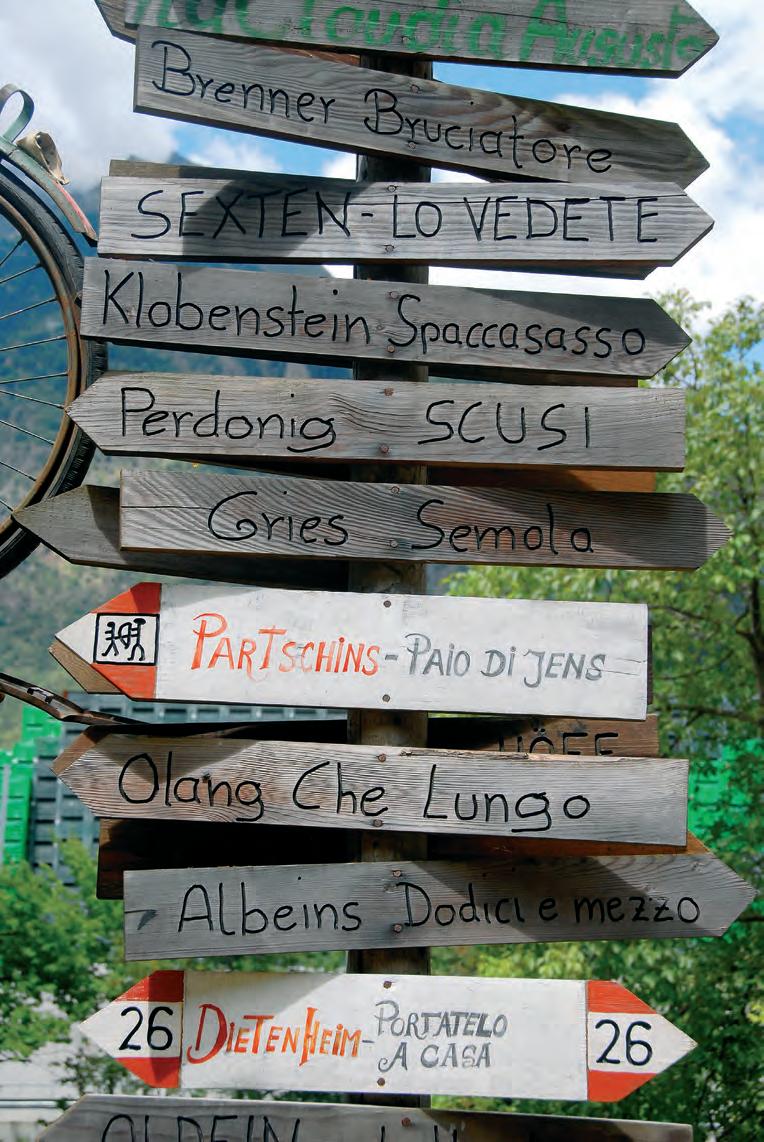 Claudia Augusta
Brenner Bruciatore
SEXTEN-LO VEDETE
Klobenstein Spaccasasso
Perdonig SCUSI
Gries Semola
PARTSCHiNS-PAIO Di JENS
HÖFE
Olang Che Lungo
Albeins Dodici e mezzo
26 DiETENHEiM-PORTATELO
A CASA 26
ALDEIN